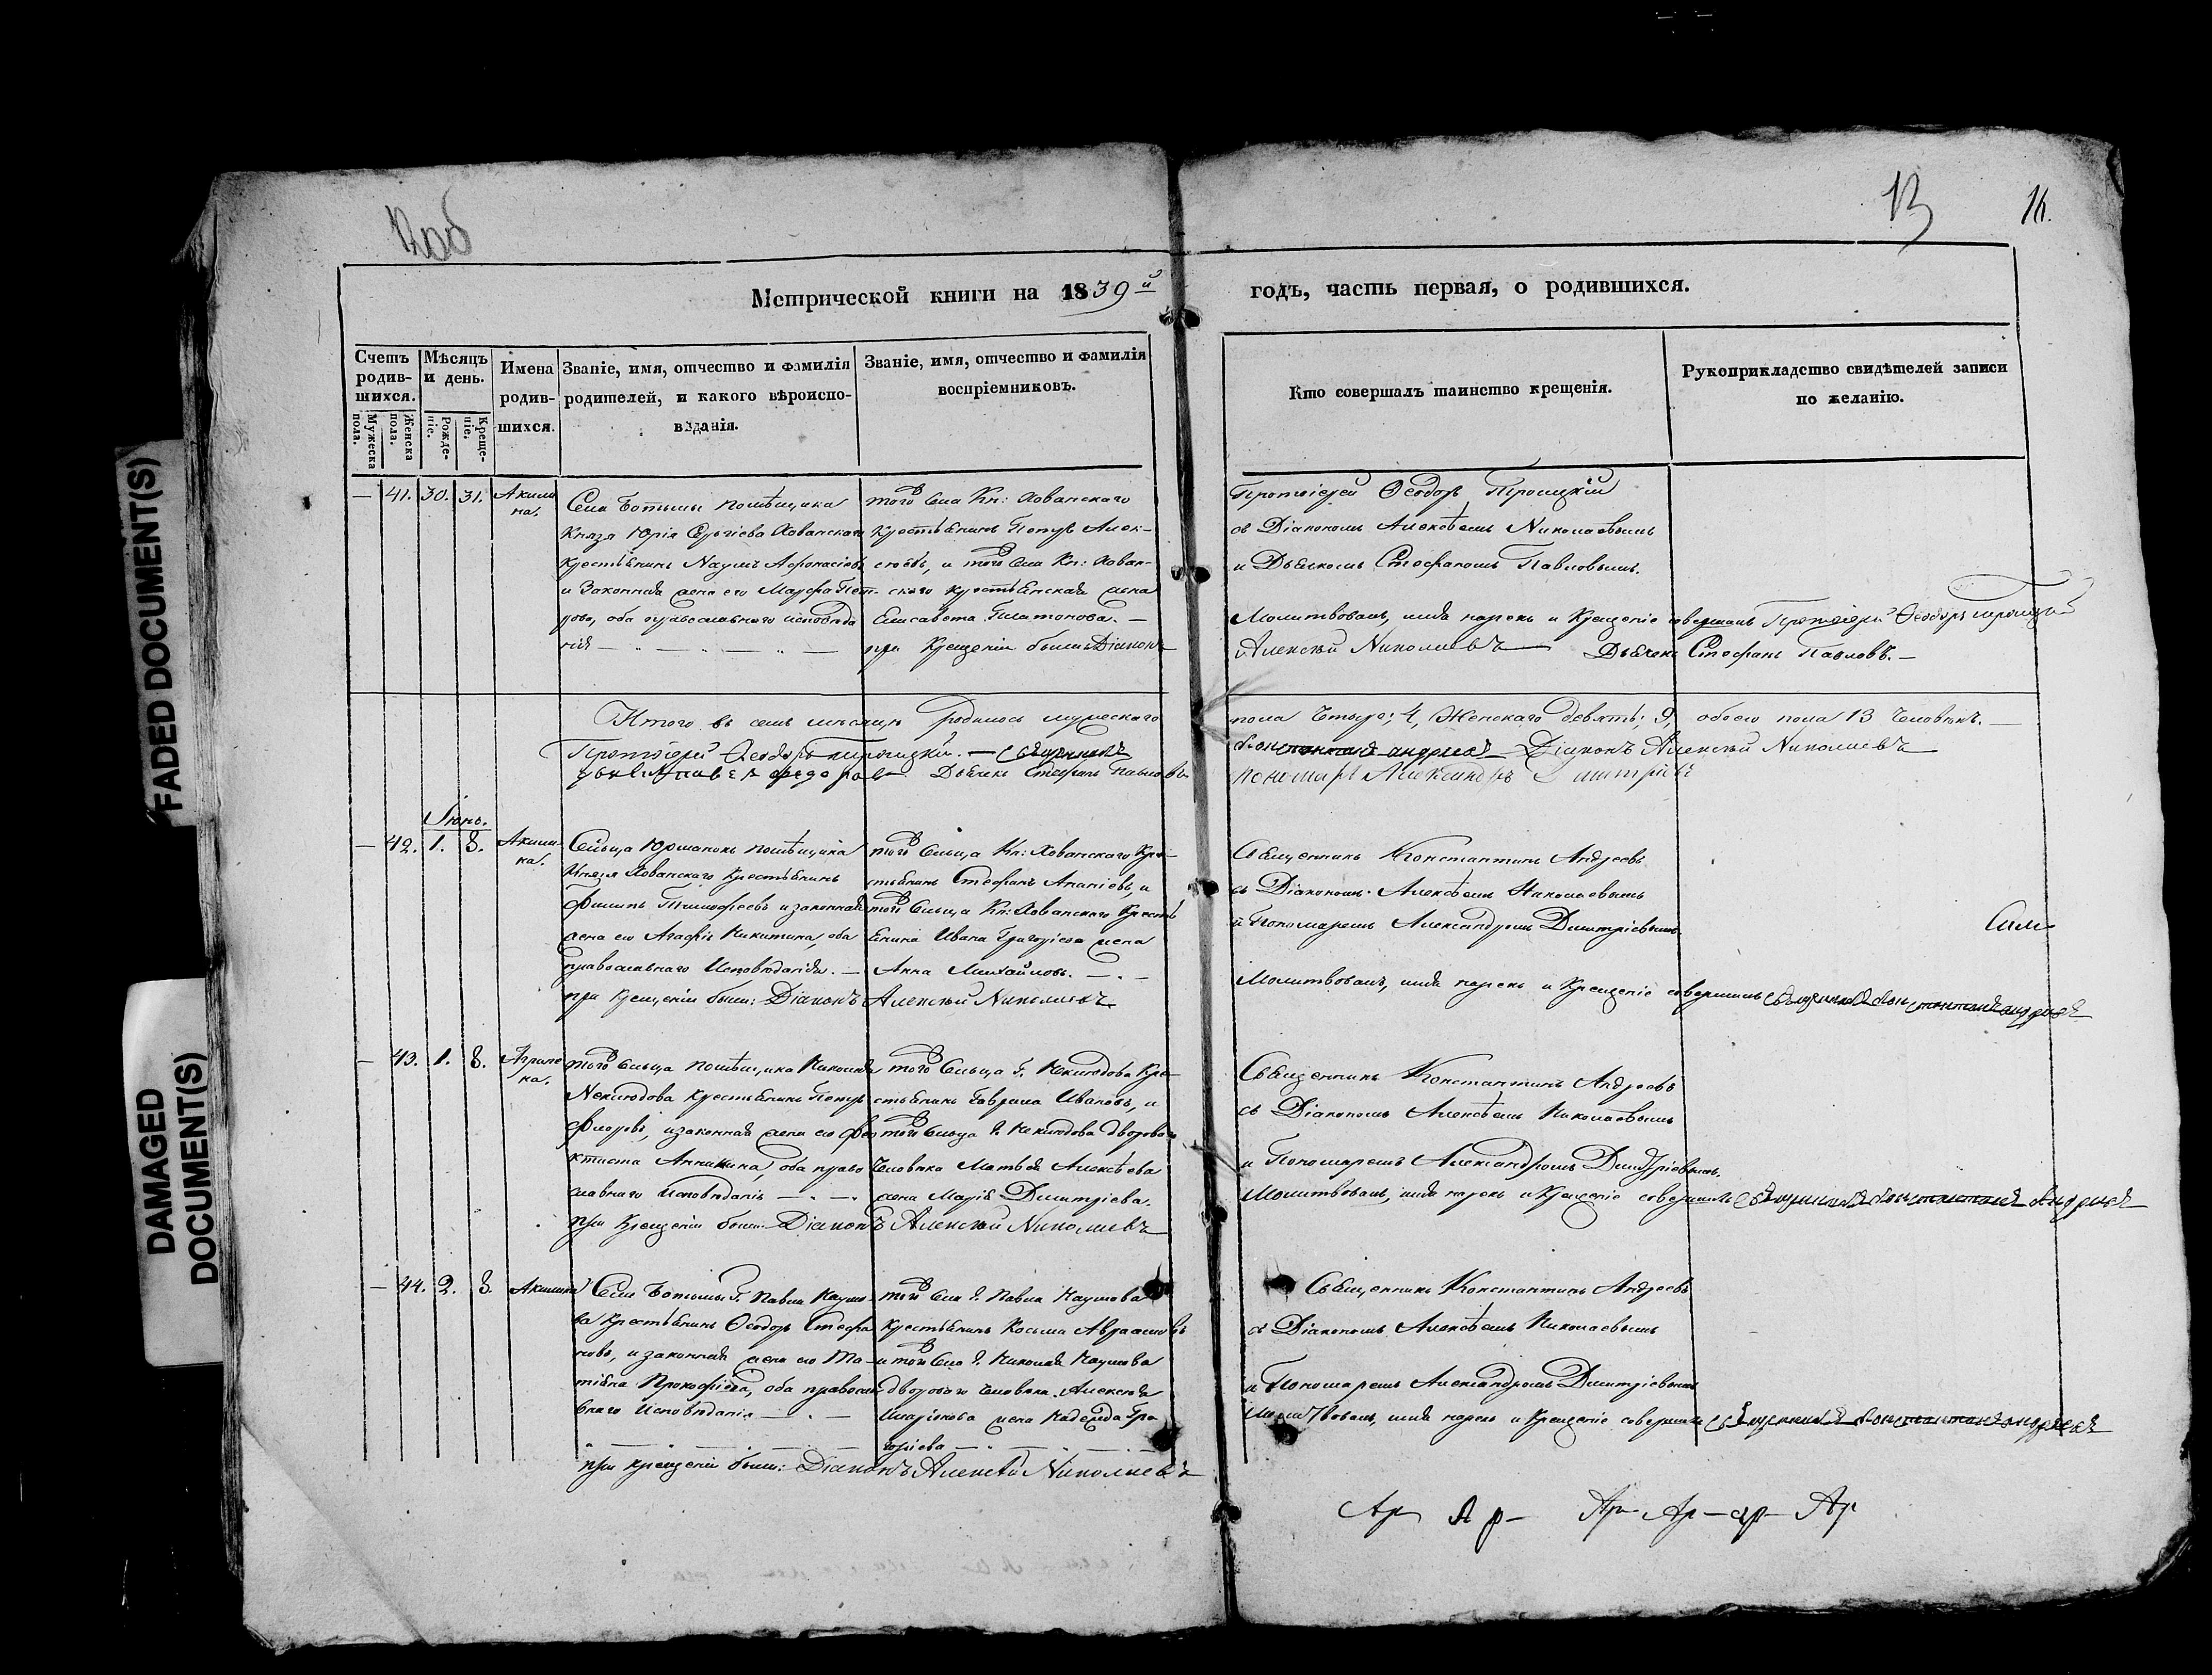 12об
13
16.
Метрической книги на 1839й годъ, часть первая, о родившихся.
Счетъ родив-
шихся.
Мужеска пола.
Женска пола.
Мѣсяцъ и день.
Рожде-
ніе.
Креще-
ніе.
Имена
родив-
шихся.
Званіе, имя, отчество и фамилія
родителей, и какого вѣроиспо-
вѣданія.
Званіе, имя, отчество и фамилія
воспріемниковъ.
Кто совершалъ таинство крещенія.
Рукоприкладство свидѣтелей записи
по желанію.
— 41. 30. 31. Акили
на.
Села Ботьмы помѣщика
Князя Юрія Сергіева Хованскаго
крестьянинъ Наумъ Афонасіевъ
и законная жена его Марфа Пет-
рова, оба православнаго исповѣда
нія
того села Кн: Хованскаго
крестьянинъ Петръ Алек-
сѣевъ, и того села Кн: Хован-
скаго крестьянская жена
Елисавета Платонова. —
при Крещеніи были: Діаконъ
Протоіерей Ѳеодоръ Троицкій
съ Діакономъ Алексѣемъ Николаевымъ
и Дьячкомъ Стефаномъ Павловымъ.
Молитвовалъ, имя нарекъ и Крещеніе совершалъ Протоіерей Ѳеодоръ Троицкій
Алексѣй Николаевъ — Дьячекъ Стефанъ Павловъ. —
Итого въ семъ мѣсяцѣ родилось мужескаго пола четыре; 4, Женскаго девять; 9, обоего пола 13 человѣкъ. —
Протоіерей Ѳеодоръ Троицкій. — Священникъ Константинъ Андреевъ Діаконъ Алексѣй Николаевъ
Павелъ Федоровъ Дьячекъ Стефанъ Павловъ пономарь Александръ Димитріевъ
Іюнь.
— 42. 1. 8. Акили-
на.
Сельца Юрманокъ помѣщика
Князя Хованскаго Крестьянинъ
Филипъ Тимофеевъ и законная
жена его Агафія Никитина, оба
православнаго Исповѣданія. —
при крещеніи были: Діаконъ Алексѣй Николаевъ
того Сельца Кн: Хованскаго Кре-
стьянинъ Стефанъ Ананіевъ, и
того Сельца Кн: Хованскаго Кресть
янина Ивана Григорьева жена
Анна Михайлова. — . —
Священникъ Константинъ Андреевъ
съ Діакономъ Алексѣемъ Николаевымъ
и Пономаремъ Александромъ Димитріевымъ
Молитвовалъ, имя нарекъ и Крещеніе совершилъ Священникъ Константинъ Андреевъ
— 43. 1. 8.
того Сельца помѣщика Николая
Неклюдова Крестьянинъ Петръ
Флоровъ, и законная жена его Фео
ктиста Аникина, оба право
славнаго Исповѣданія — . — .
при Крещеніи были: Діаконъ Алексѣй Николаевъ
того Сельца Г. Неклюдова Кре-
стьянинъ Гаврила Ивановъ, и
того Сельца Г. Неклюдова дворова
человѣка Матвѣя Алексѣева
жена Марія Димитріева.
Священникъ Константинъ Андреевъ
съ Діакономъ Алексѣемъ Николаевымъ
и Пономаремъ Александромъ Димитріевымъ.
Молитвовалъ, имя нарекъ и Крещеніе совершилъ Священникъ Константинъ Андреевъ
— 44. 2. 8. Акилина
Села Ботьмы Г. Павла Наумо-
ва Крестьянинъ Ѳеодоръ Стефа
новъ, и законная жена его Та-
тіана Прокофіева, оба правосла
внаго Исповѣданія — . —
при крещеніи были: Діаконъ Алексѣй Николаевъ
того Села Г. Павла Наумова
Крестьянинъ Косьма Авраамовъ
и того Села Г. Николая Наумова
двороваго человѣка Алексѣя
жена Надежда Гри
горіева —
Священникъ Константинъ Андреевъ
съ Діакономъ Алексѣемъ Николаевымъ
и Пономаремъ Александромъ Димитріевымъ
Молитвовалъ, имя нарекъ и Крещеніе совершилъ Священникъ Константинъ Андреевъ
Ар Ар — Ар — Ар — ар — Ар
FADED DOCUMENT(S)
DAMAGED
DOCUMENT(S)